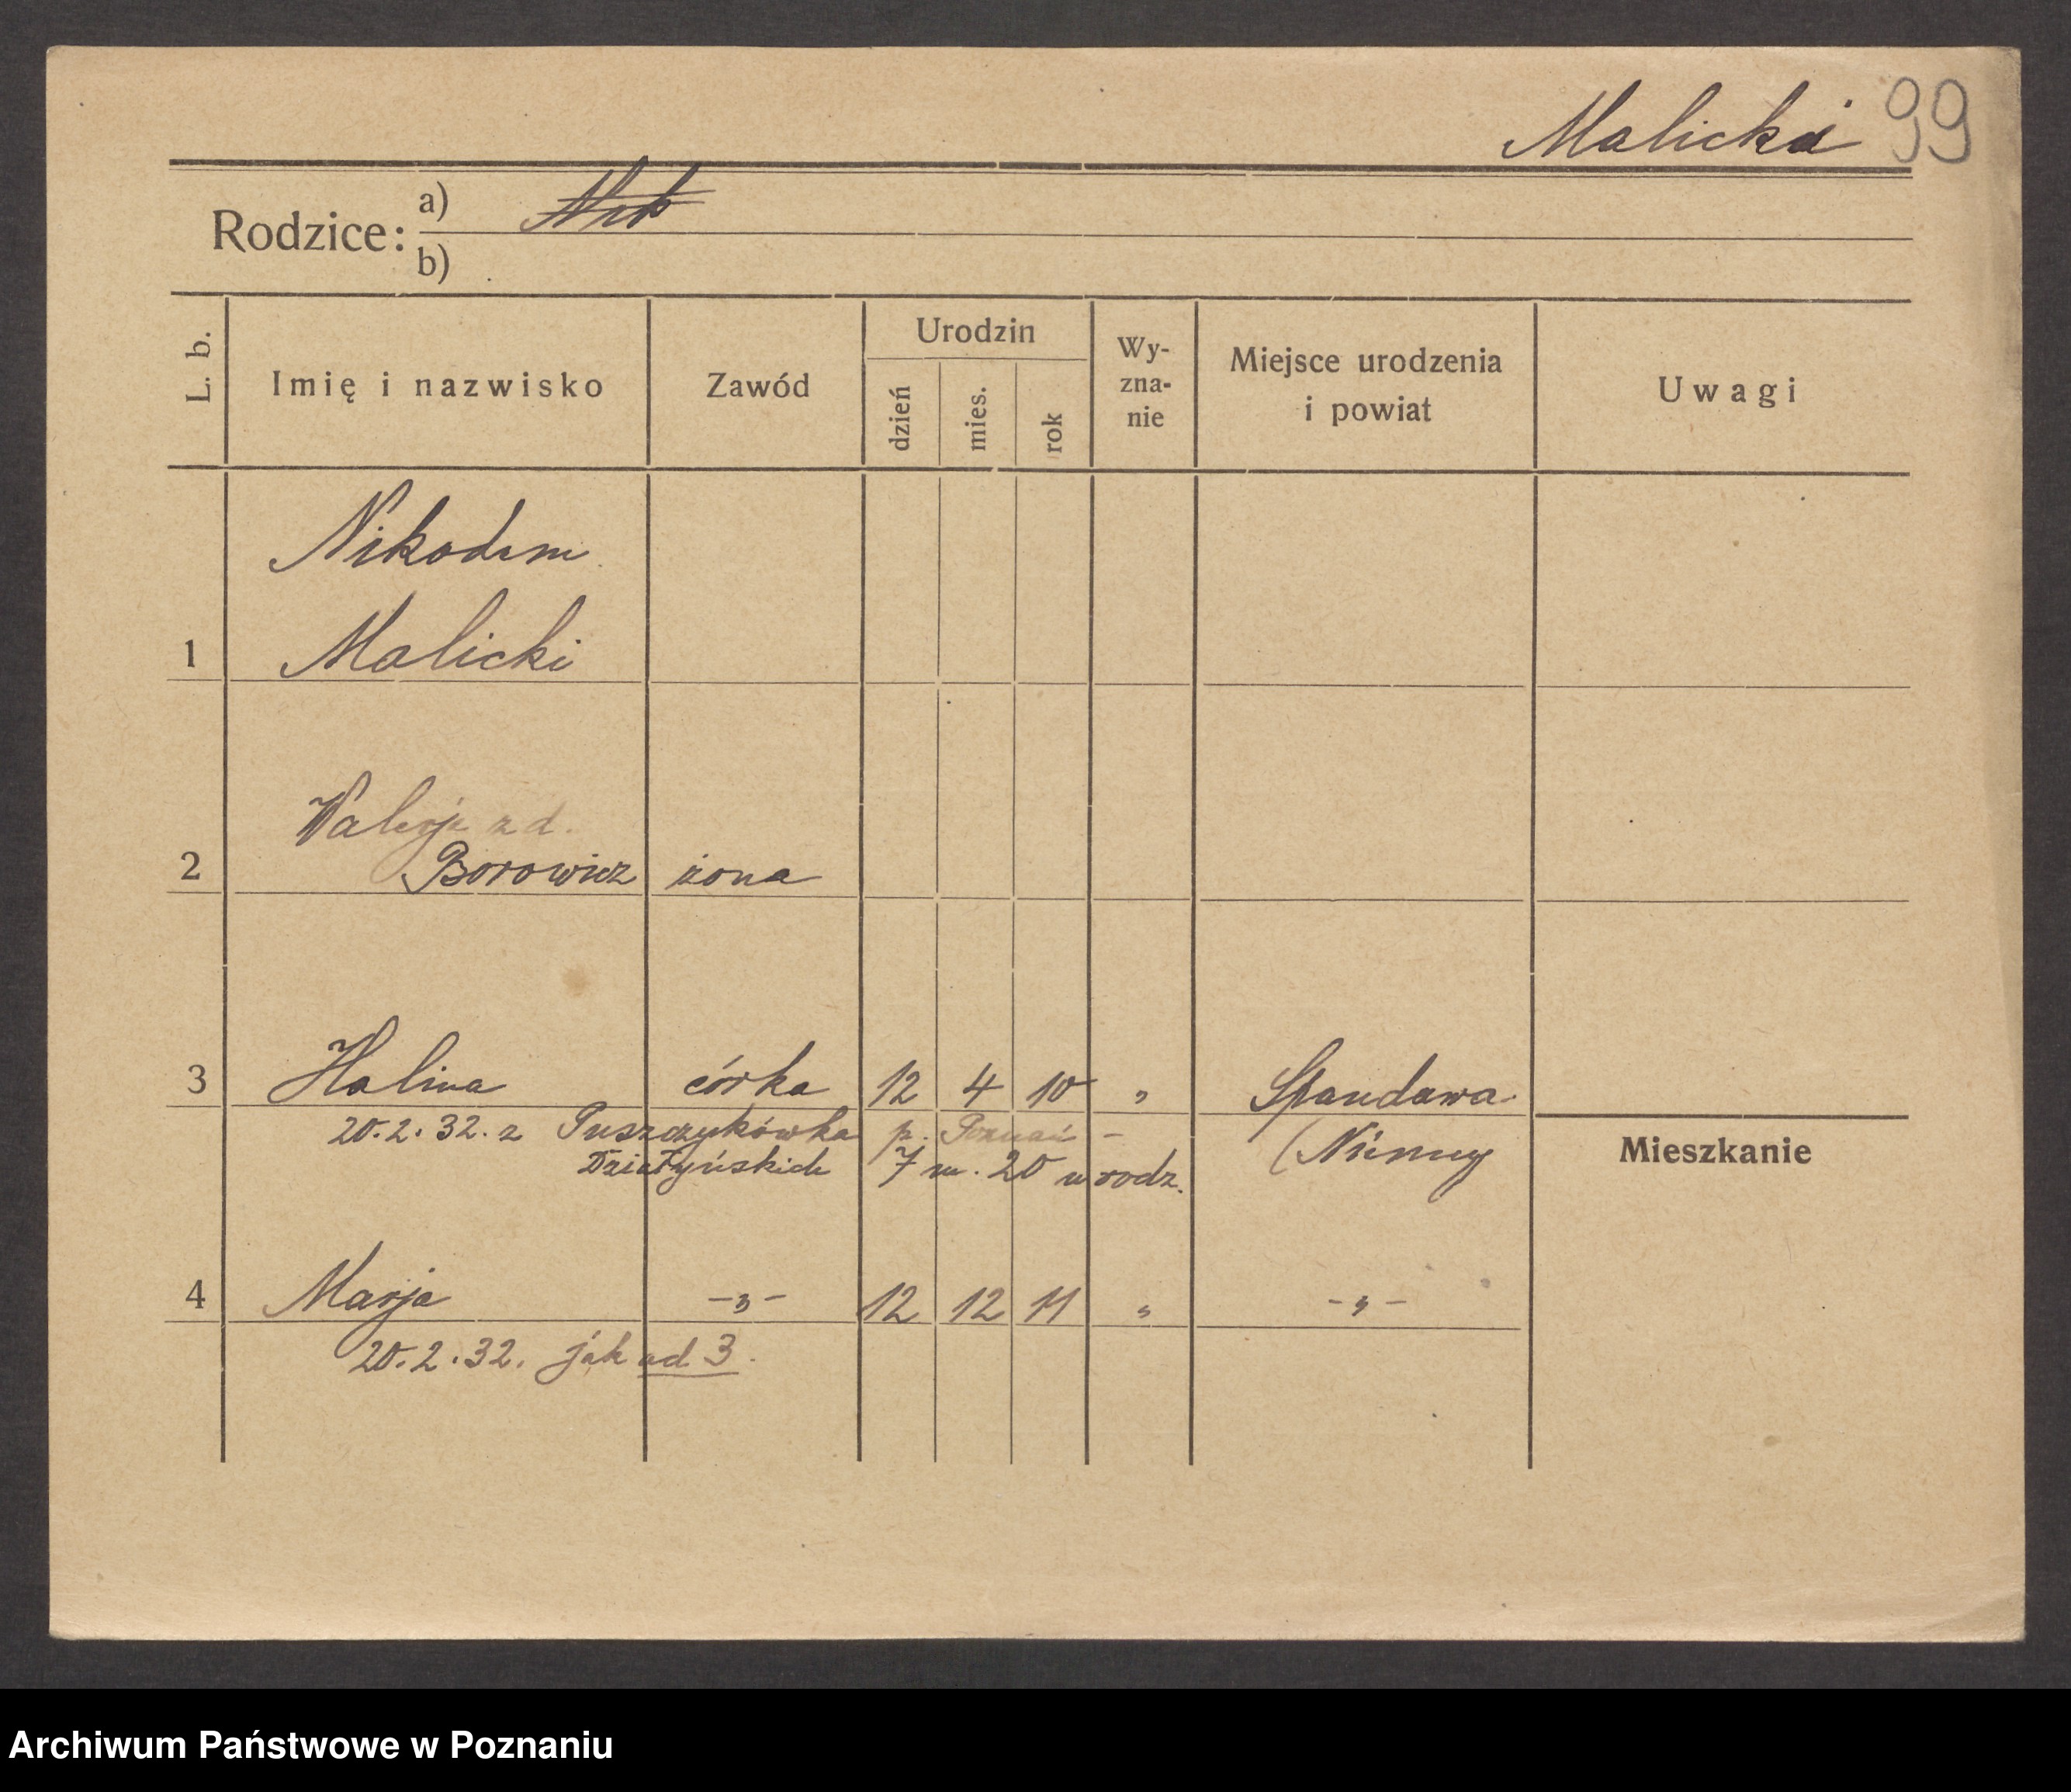 Malicka 99
Rodzice: a)
b)
L. b. Imię i nazwisko Zawód Urodzin dzień mies. rok Wy-zna-nie Miejsce urodzenia i powiat Uwagi
Nikodem
1 Malicki
Walerja z d.
2 Borowicz żona
3 Halina córka 12 4 10 „ Spandawa
20.2.32. z Puszczykówka p. Poznań - (Niemcy
Działyńskich 7 m. 20 u rodz.
Mieszkanie
4 Marja -„- 12 12 11 „ -„-
20.2.32. jak ad 3.
Archiwum Państwowe w Poznaniu